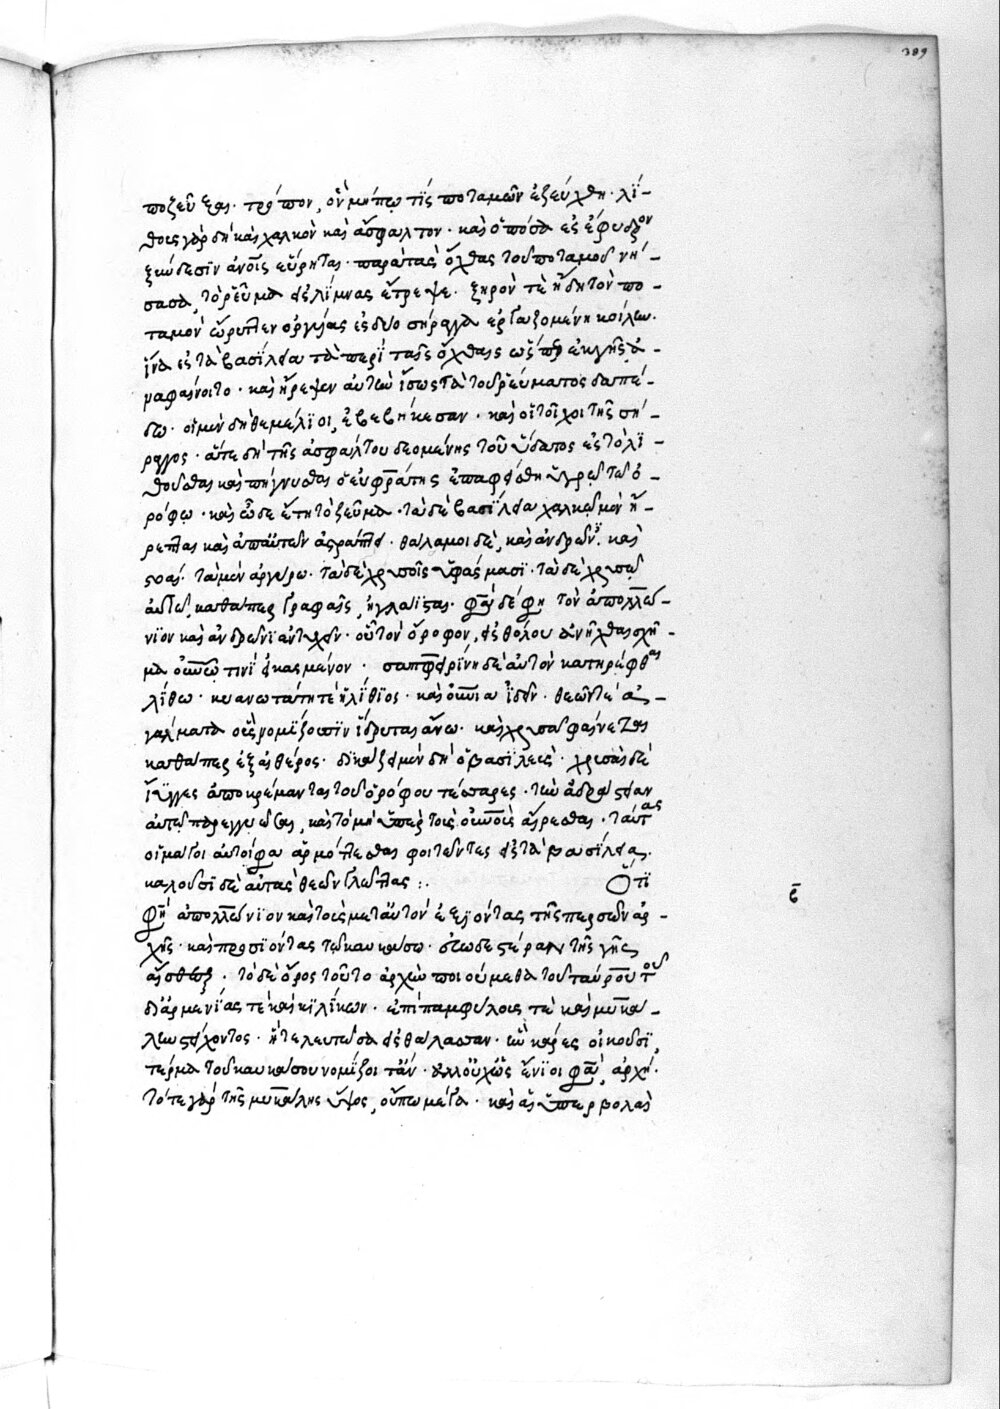 389
ποζεῦξαι· τρόπον, ὃν μήπω τὶς ποταμῶν ἐξεύχθη· λί-
θους γὰρ δὴ καὶ χαλκὸν καὶ ἄσφαλτον· καὶ ὁπόσα ἐς ἔφυδρον
ξύνδεσιν ἀνοις εὕρηται· παρὰ τὰς ὄχθας τοῦ ποταμοῦ νή-
σασα, τὸ ῥεῦμα εἰς λίμνας ἔτρεψε· ξηρόν τε ἤδη τὸν πο-
ταμὸν ὤρυττεν ὀργυίας ἐς δύο σήραγγα ἐργαζομένη κοίλην·
ἵνα ἐς τὰ βασίλεια τὰ περὶ ταῖς ὄχθαις ὥσπερ ἐκ γῆς ἀ-
ναφαίνοιτο· καὶ ἤρεψεν αὐτὴν ἴσως τὰ τοῦ ῥεύματος δαπέ-
δω· οἱ μὲν δὴ θεμέλιοι, ἐβεβήκεσαν· καὶ οἱ τοῖχοι τῆς σή-
ραγγος· ἅτε δὴ τῆς ἀσφάλτου δεομένης τοῦ ὕδατος ἐς τὸ λι-
θοῦσθαι καὶ πήγνυσθαι ὁ εὐφράτης ἐπαφείθη ὑγρῶ τῶ ὀ-
ρόφω· καὶ ὧδε ἔστη τὸ ζεῦμα· τὰ δὲ βασίλεια χαλκῶ μὲν ἤ-
ρεπται καὶ ἀπ' αὐτῶν ἀστράπτει· θάλαμοι δὲ, καὶ ἀνδρῶνες καὶ
στοαί· τὰ μὲν ἀργύρω· τὰ δὲ χρυσοῖς ὑφάσμασι· τὰ δὲ χρυσῶ
αὐτῶ, καθάπερ γραφαῖς, ἠγλάϊσται· φασὶ δέ φη τὸν ἀπολλώ-
νιον καὶ ἀνδρῶνι ἐντυχεῖν· οὗ τὸν ὄροφον, εἰς θόλου ἀνῆχθαι σχῆ-
μα οὐνῶ τινὶ εἰκασμένον· σαπφειρίνη δὲ αὐτὸν κατηρέφθαι
λίθω· κυανωτάτη τε ἡ λίθος· καὶ οὐνία ἰδεῖν· θεῶν τε ἀ-
γάλματα οὓς νομίζουσιν ἵδρυται ἄνω· καὶ χρυσᾶ φαίνεται
καθάπερ ἐξ αἰθέρος· δικάζει μὲν δὴ ὁ βασιλεὺς· χρυσαῖ δὲ
ἴϋγγες ἀποκρέμανται τοῦ ὀρόφου τέσσαρες· τὴν ἀδράστειαν
αὐτῶ παρεγγυῶσαι, καὶ τὸ μὴ ὑπὲρ τοὺς οὐνοὺς αἴρεσθαι· ταύτας
οἱ μάγοι αὐτοί φασιν ἁρμόττεσθαι φοιτῶντες εἰς τὰ βασίλεια.
καλοῦσι δὲ αὐτὰς θεῶν γλώττας:. Ὅτι
φησὶν ἀπολλώνιον καὶ τοὺς μετ' αὐτὸν ἐξιόντας τῆς περσῶν ἀρ-
χῆς· καὶ προσιόντας τῶ καυκάσω· εὐωδεστέρας τῆς γῆς
αἴσθεσθαι· τὸ δὲ ὄρος τοῦτο ἀρχὴν ποιούμεθα τοῦ ταύρου τοῦ
δι' ἀρμενίας τε καὶ κιλίκων· ἐπὶ παμφύλους τε καὶ μυκά-
λην στείχοντος· ἣ τελευτῶσα εἰς θάλασσαν· ἣν κᾶρες οἰκοῦσι,
τέρμα τοῦ καυκάσου νομίζοιτ' ἄν· ἀλλ' οὐχ ὡς ἔνιοι φασὶν, ἀρχή·
τό τε γὰρ τῆς μυκάλης ὕψος, οὔπω μέγα· καὶ αἱ ὑπερβολαὶ